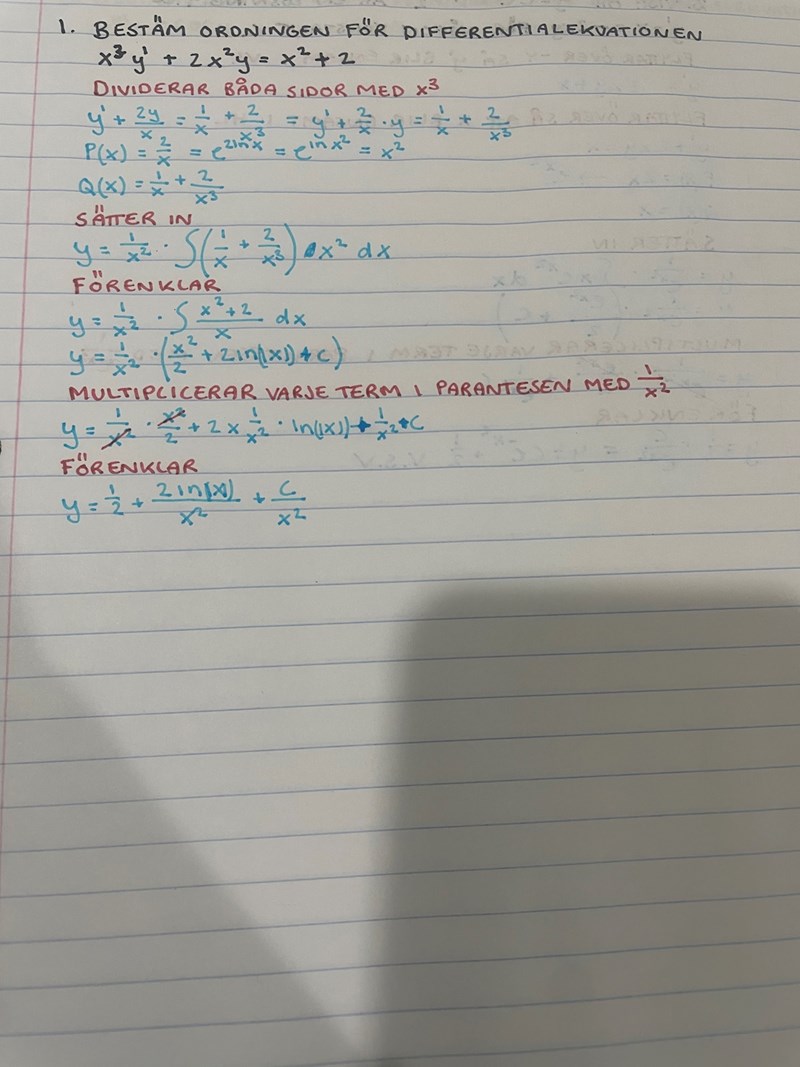 1. BESTÄM ORDNINGEN FÖR DIFFERENTIALEKVATIONEN
x³y' + 2x²y = x² + 2
DIVIDERAR BÅDA SIDOR MED x³
y' + 2y/x = 1/x + 2/x³ = y' + 2/x · y = 1/x + 2/x³
P(x) = 2/x = e^2lnx = e^lnx² = x²
Q(x) = 1/x + 2/x³
SÄTTER IN
y = 1/x² · ∫(1/x + 2/x³) · x² dx
FÖRENKLAR
y = 1/x² · ∫ x²+2/x dx
y = 1/x² · (x²/2 + 2ln(|x|) + C)
MULTIPLICERAR VARJE TERM I PARANTESEN MED 1/x²
y = 1/x² · x²/2 + 2 x 1/x² · ln(|x|) + 1/x² · C
FÖRENKLAR
y = 1/2 + 2ln|x|/x² + C/x²